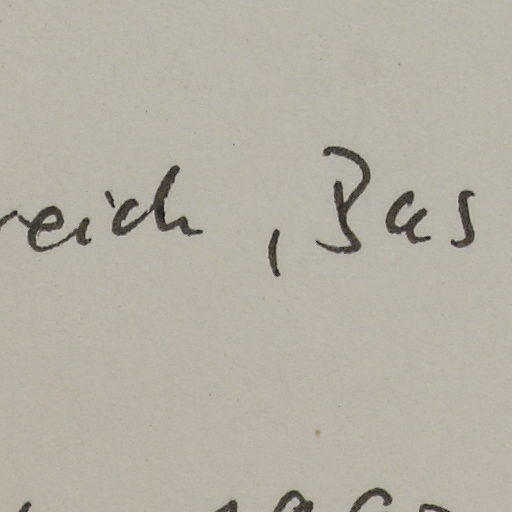 reich, Bas